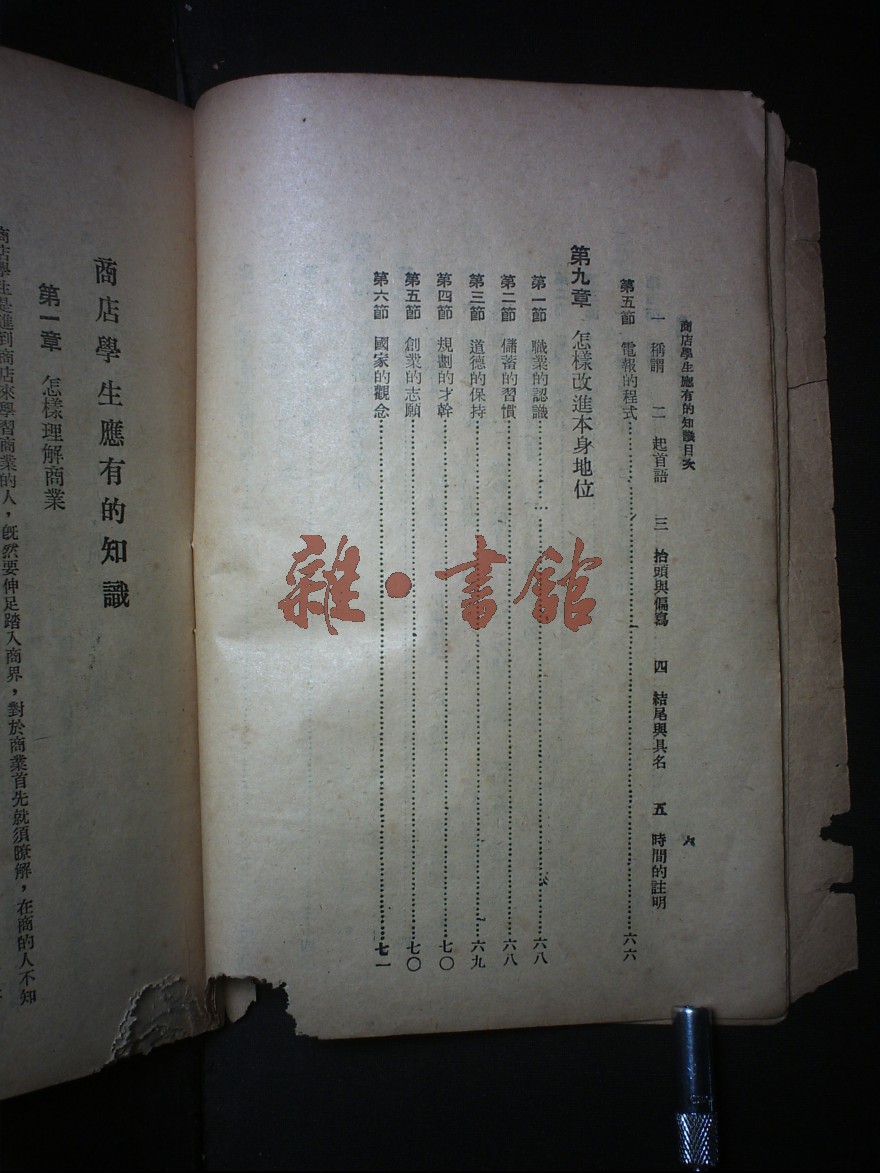 商店學生應有的知識目次
六
一 稱謂 二 起首語 三 抬頭與偏寫 四 結尾與具名 五 時間的註明
第五節 電報的程式……六六
第九章 怎樣改進本身地位
第一節 職業的認識……六八
第二節 儲蓄的習慣……六八
第三節 道德的保持……六九
第四節 規劃的才幹……七〇
第五節 創業的志願……七〇
第六節 國家的觀念……七一
商店學生應有的知識
第一章 怎樣理解商業
商店學生是進到商店來學習商業的人，旣然要伸足踏入商界，對於商業首先就須瞭解，在商的人不知
雜·書館